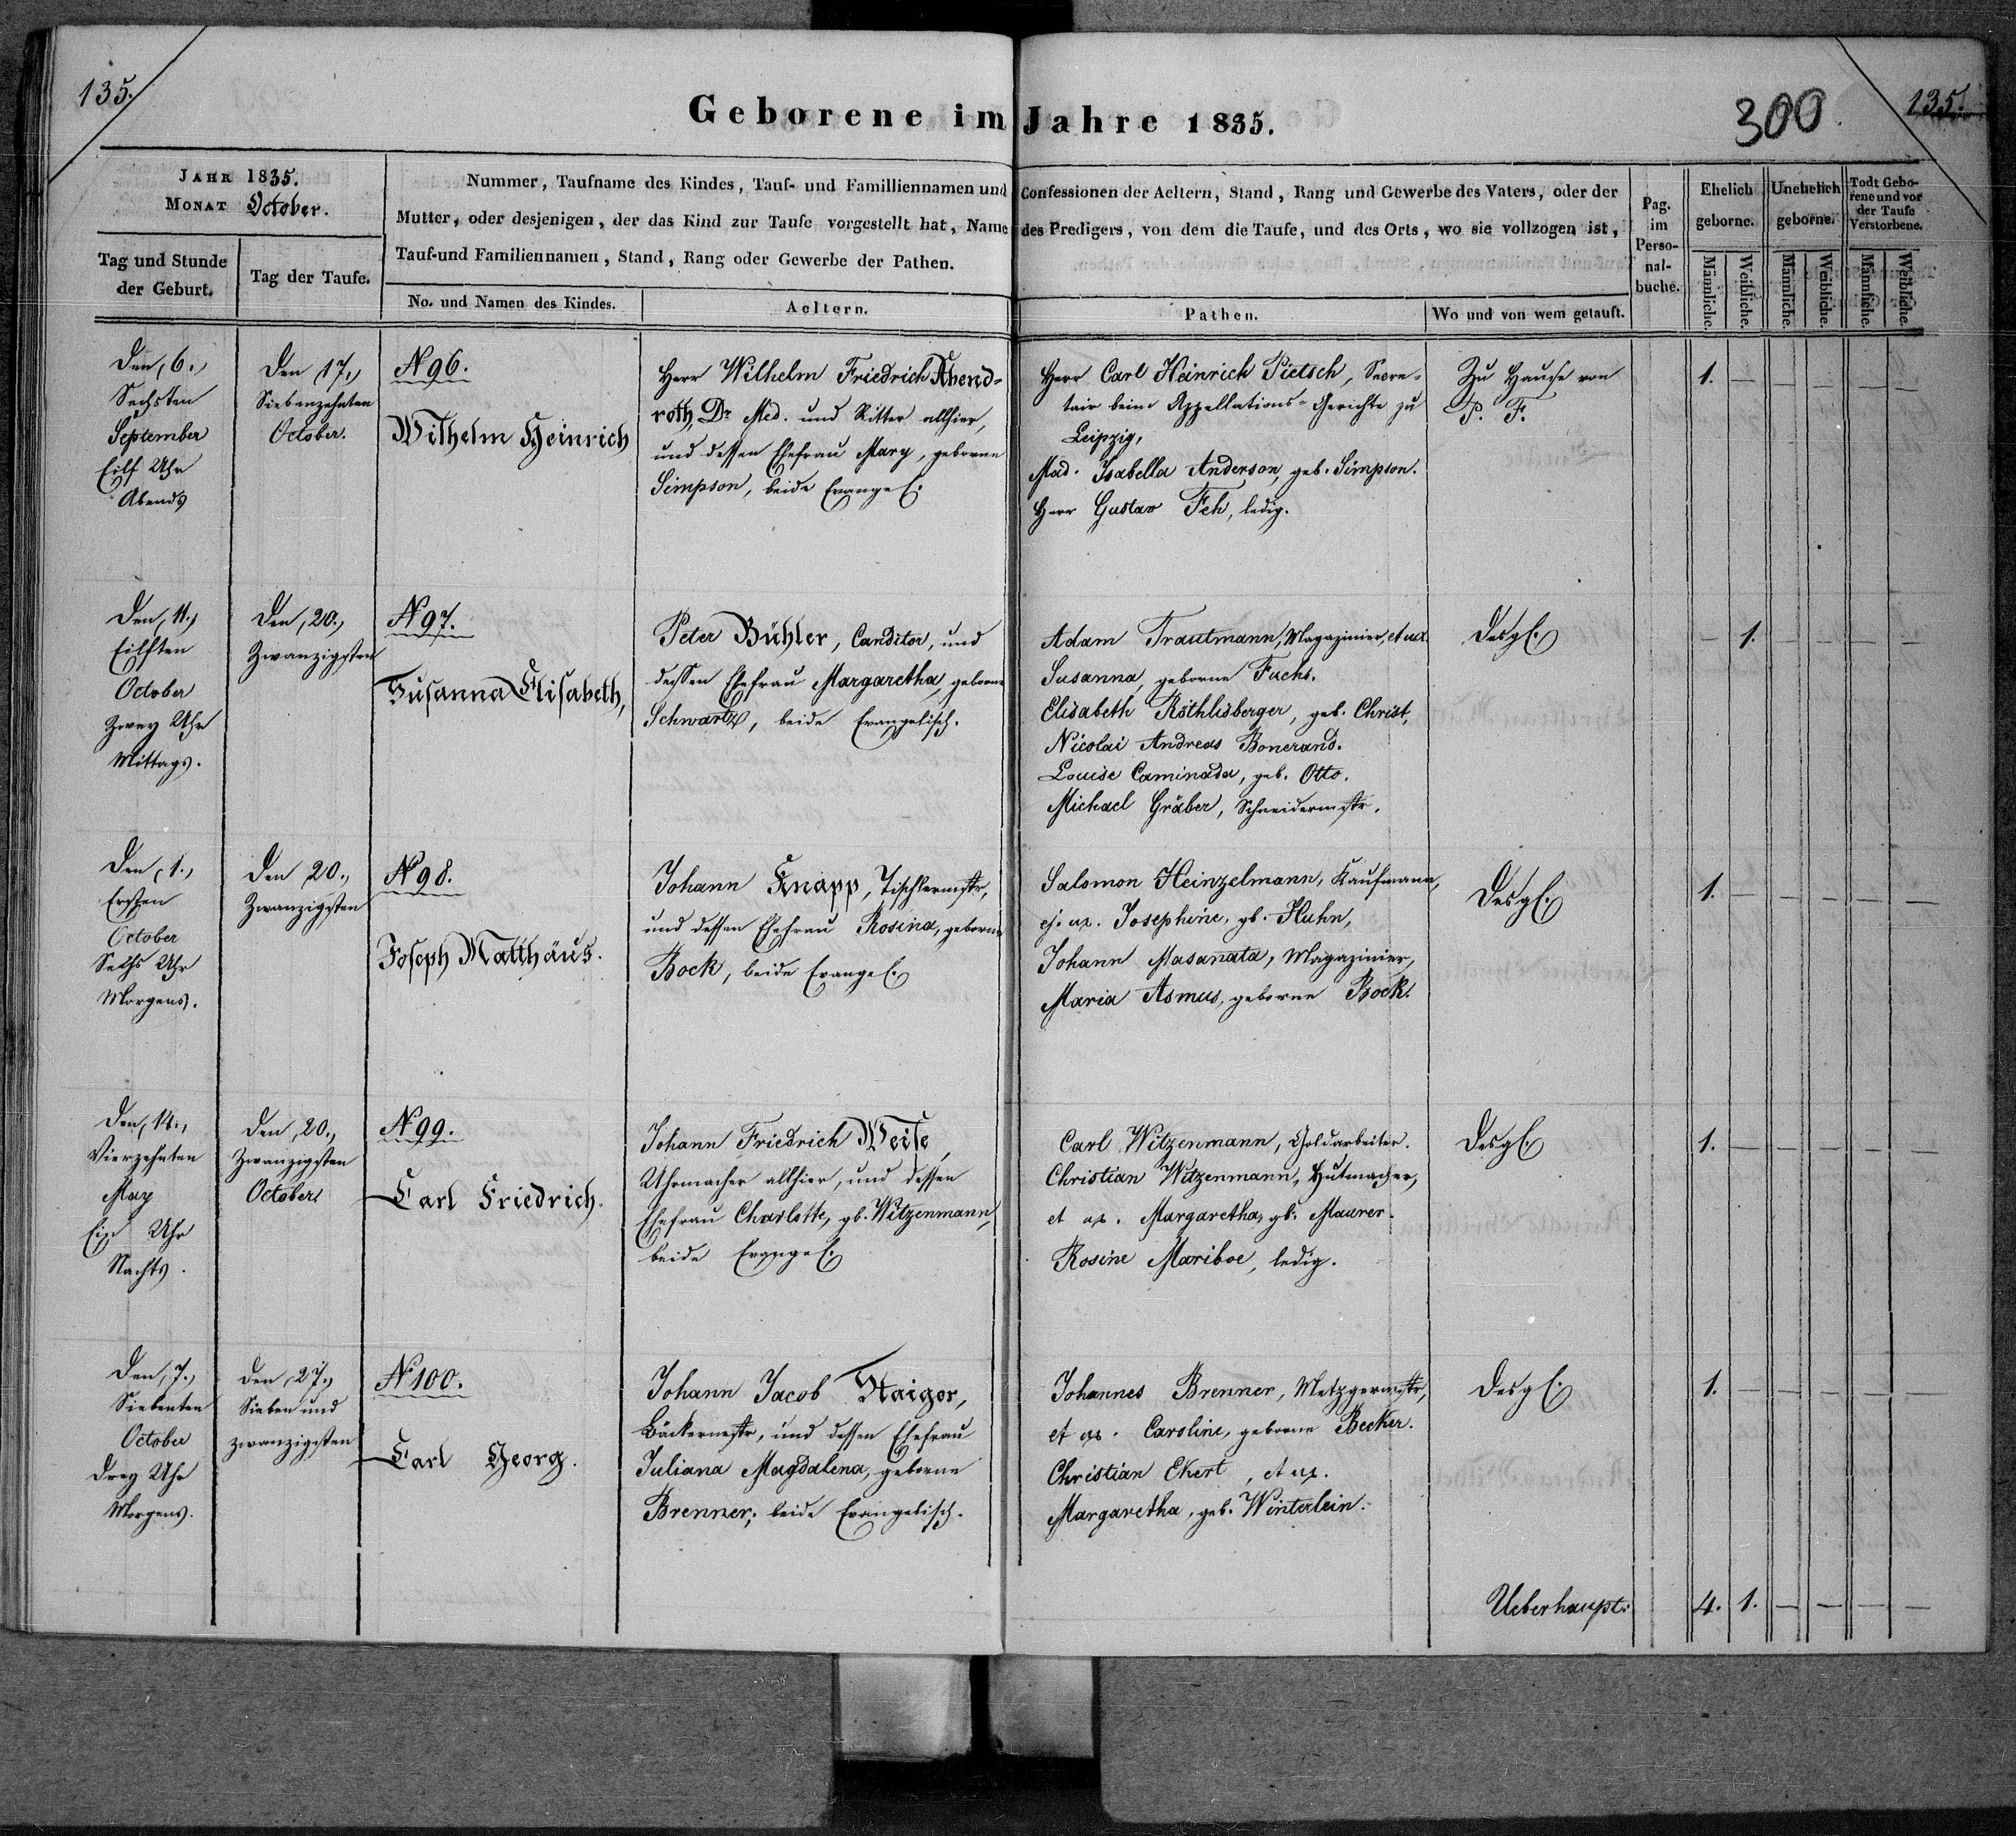 135.
300
135.
Geborene im Jahre 1835.
JAHR 1835.
MONAT October.
Tag und Stunde der Geburt.
Tag der Taufe.
Nummer, Taufname des Kindes, Tauf- und Familliennamen und Confessionen der Aeltern, Stand, Rang und Gewerbe des Vaters, oder der
Mutter, oder desjenigen, der das Kind zur Taufe vorgestellt hat, Name des Predigers, von dem die Taufe, und des Orts, wo sie vollzogen ist,
Tauf-und Familiennamen, Stand, Rang oder Gewerbe der Pathen.
No. und Namen des Kindes.
Aeltern.
Pathen.
Wo und von wem getauft.
Pag. im Perso-nal-buche.
Ehelich geborne.
Unehelich geborne.
Todt Gebo-rene und vor der Taufe Verstorbene.
Männliche.
Weibliche.
Männliche.
Weibliche.
Männliche.
Weibliche.
Den, 6.,
Sechsten
September
Eilf Uhr
Abends
Den 17.,
Siebenzehnten
October.
N 96.
Wilhelm Heinrich
Herr Wilhelm Friedrich Abend-
roth, Dr Med. und Ritter allhier,
und dessen Ehefrau Mary, geborne
Simpson, beide Evangel.
Herr Carl Heinrich Pietsch, Secre-
tair beim Appellations-Gerichte zu
Leipzig,
Mad. Isabella Anderson, geb. Simpson.
Herr Gustav Feh, ledig.
Zu Hause von
P. F.
1. — — — — —
Den, 11.,
Eilften
October
Zwey Uhr
Mittags.
Den, 20.,
Zwanzigsten
N 97.
Susanna Elisabeth,
Peter Bühler, Canditor, und
dessen Ehefrau Margaretha, geborne
Schwartz, beide Evangelisch.
Adam Trautmann, Magazinier, et ux.
Susanna, geborne Fuchs.
Elisabeth Röthlisberger, geb. Christ,
Nicolai Andreas Bonerand.
Louise Caminada, geb. Otto.
Michael Gräber, Schneidermstr.
Desgl.
— 1. — — — —
Den, 1.,
Ersten
October
Sechs Uhr
Morgens.
Den 20.,
Zwanzigsten
N 98.
Joseph Matthäus.
Johann Knapp, Tischlermstr,
und dessen Ehefrau Rosina, geborne
Bock, beide Evangel.
Salomon Heinzelmann, Kaufmann,
ej. ux. Josephine, gb. Huhn,
Johann Masanata, Magazinier,
Maria Asmus, geborne Bock.
Desgl.
1. — — — — —
Den, 14.,
Vierzehnten
May
Ein Uhr
Nachts.
Den, 20.,
Zwanzigsten
October
N 99.
Carl Friedrich.
Johann Friedrich Weise,
Uhrmacher allhier, und dessen
Ehefrau Charlotte, gb. Witzenmann,
beide Evangel.
Carl Witzenmann, Goldarbeiter.
Christian Witzenmann, Hutmacher,
et ux. Margaretha, gb. Maurer.
Rosine Mariboe, ledig.
Desgl.
1. — — — — —
Den, 7.,
Siebenten
October
Drey Uhr
Morgens.
Den, 27.,
Sieben und
zwanzigsten
N 100.
Carl Georg.
Johann Jacob Staiger,
Bäckermstr, und dessen Ehefrau
Juliana Magdalena, geborne
Brenner, beide Evangelisch.
Johannes Brenner, Metzgermstr,
et ux. Caroline, geborne Becker.
Christian Ekert, et ux.
Margaretha, geb. Winterlein.
Desgl.
1. — — — — —
Ueberhaupt: 4. 1. — — — —